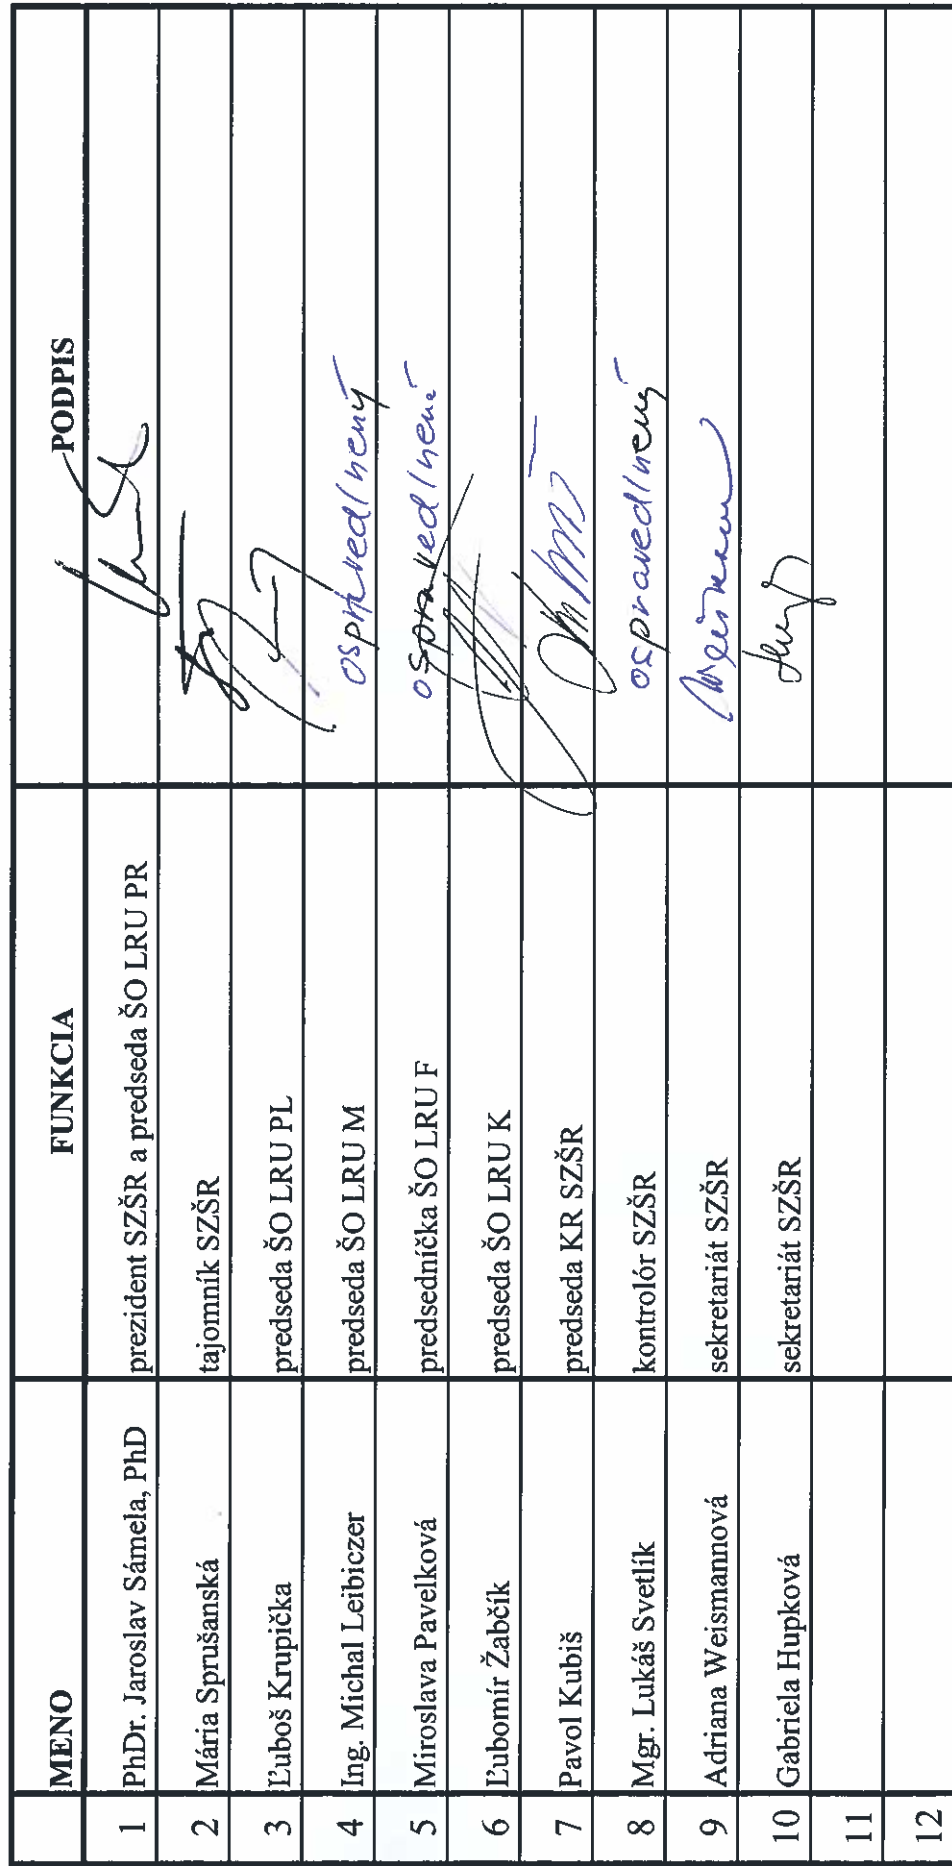 MENO FUNKCIA PODPIS
1 PhDr. Jaroslav Sámela, PhD prezident SZŠR a predseda ŠO LRU PR
2 Mária Sprušanská tajomník SZŠR
3 Ľuboš Krupička predseda ŠO LRU PL
4 Ing. Michal Leibiczer predseda ŠO LRU M ospravedlnený
5 Miroslava Pavelková predsedníčka ŠO LRU F ospravedlnená
6 Ľubomír Žabčík predseda ŠO LRU K
7 Pavol Kubiš predseda KR SZŠR
8 Mgr. Lukáš Svetlík kontrolór SZŠR ospravedlnený
9 Adriana Weismannová sekretariát SZŠR
10 Gabriela Hupková sekretariát SZŠR
11
12